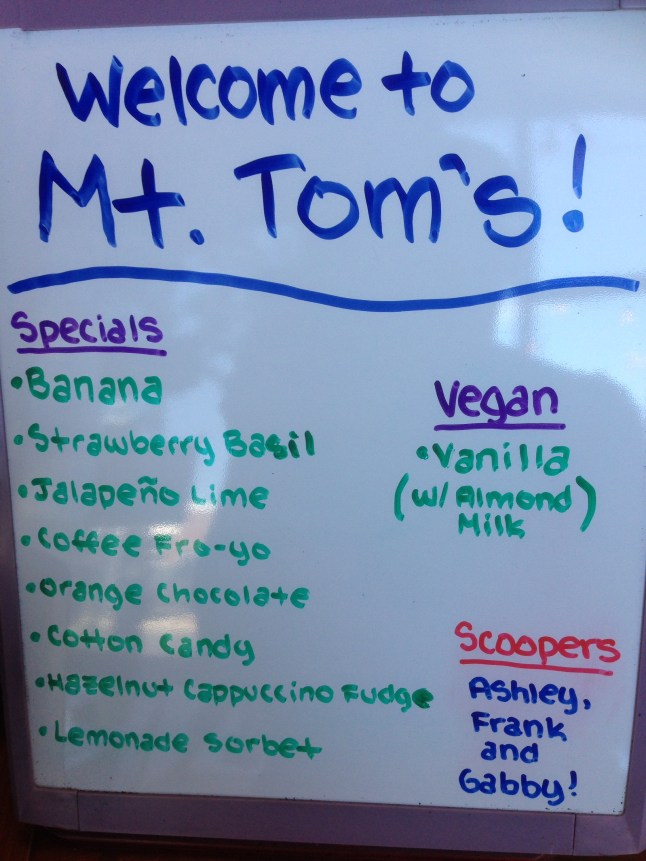 Welcome to
Mt. Tom's!
Specials
• Banana
• Strawberry Basil
• Jalapeño Lime
• Coffee Fro-yo
• Orange Chocolate
• Cotton Candy
• Hazelnut Cappuccino Fudge
• Lemonade Sorbet
Vegan
• Vanilla
(w/ Almond
Milk)
Scoopers
Ashley,
Frank
and
Gabby!